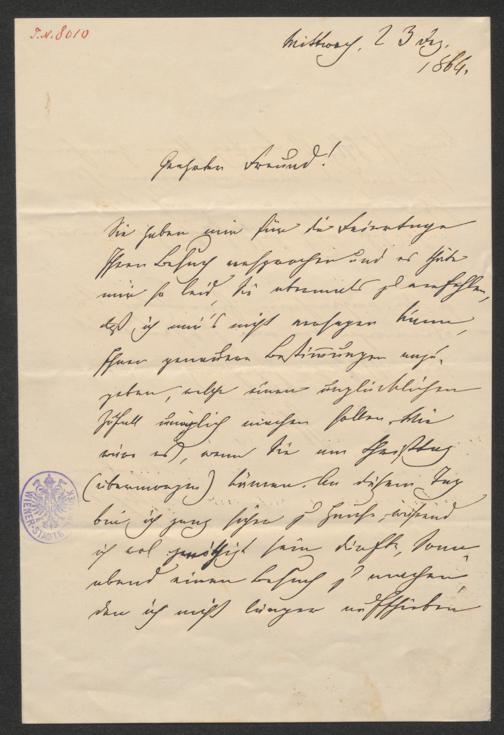 J.N. 8010
Mittwoch, 23 Dez.
1864.
Geehrter Freund!
Sie haben mir für die Feiertage
Ihren Besuch versprochen und es thäte
mir so leid, Sie abermals zu verfehlen,
daß ich mir's nicht versagen kann,
Ihnen genauere Bestimmungen anzu-
geben, welche einen unglücklichen
Zufall unmöglich machen sollen. Wie
wäre es, wenn Sie am Christtag
(übermorgen) kämen. An diesem Tag
bin ich ganz sicher zu Hause, während
ich wol genöthigt sein dürfte, Sonn-
abend einen Besuch zu machen,
den ich nicht länger aufschieben
WIENER-STADT